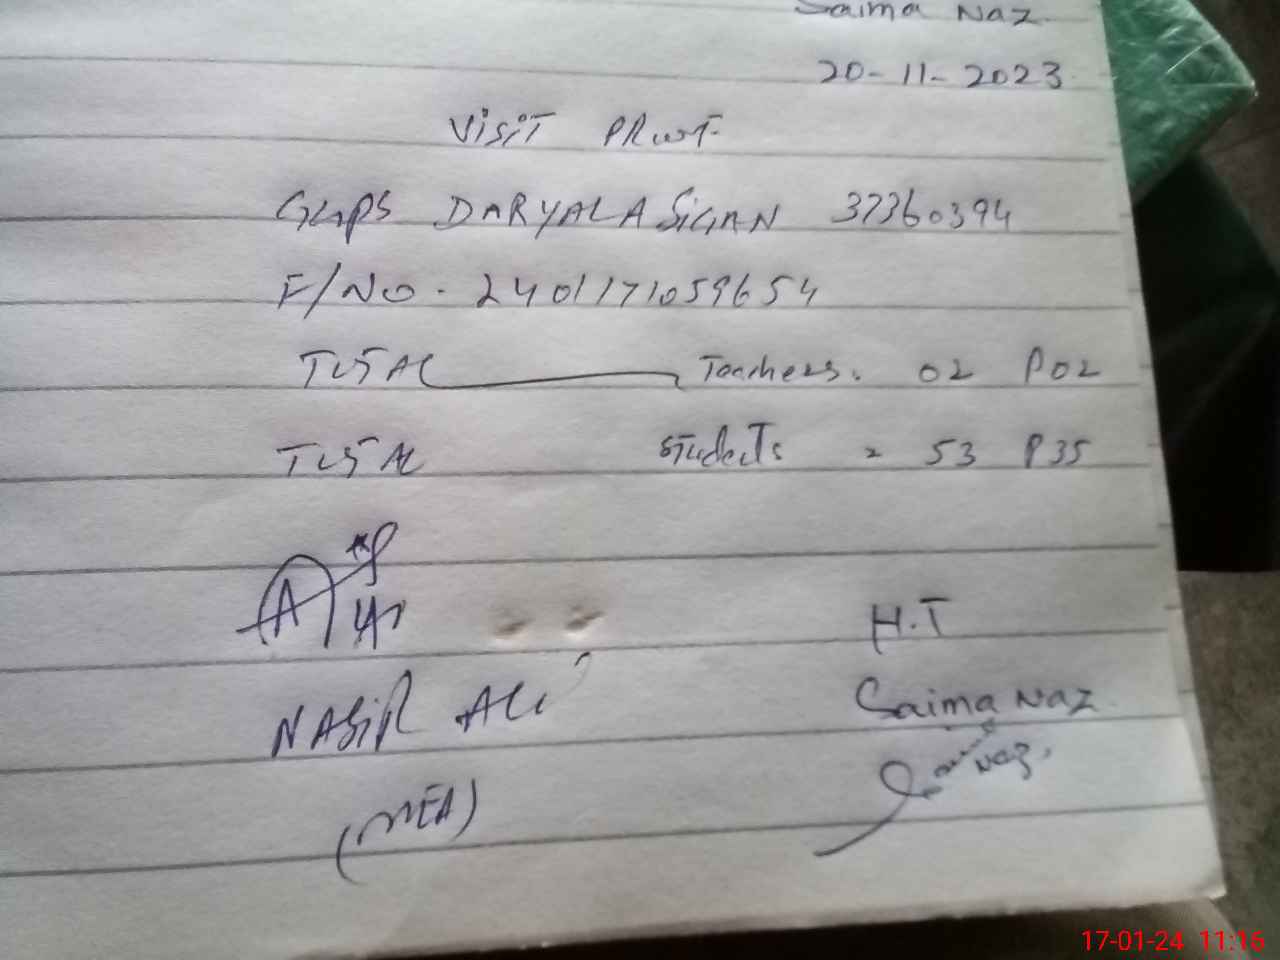 Saima Naz.
20-11-2023
VISIT PROOF
GGPS DARYALA SIGAN 37360394
F/NO. 2401171059654
TOTAL Teachers. 02 P02
TOTAL Students = 53 P35
H.T
NASIR ALI
Saima Naz.
(MEA)
Naz.
17-01-24 11:16